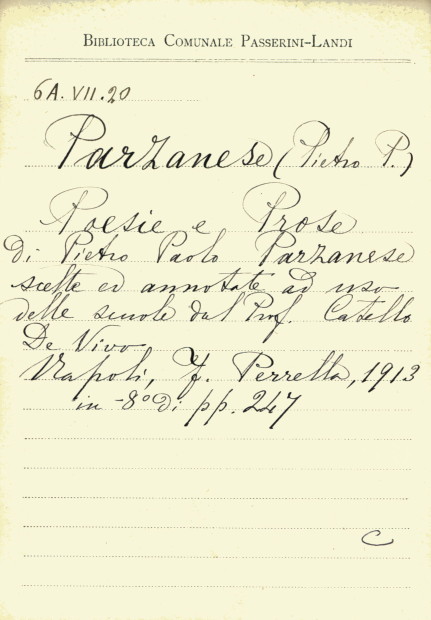 BIBLIOTECA COMUNALE PASSERINI-LANDI
6A.VII.20
Parzanese (Pietro P.)
Poesie e Prose
di Pietro Paolo Parzanese
scelte ed annotate ad uso
delle scuole dal Prof. Catello
De Vivo
Napoli, F. Perrella, 1913
in-8° di pp. 247
C